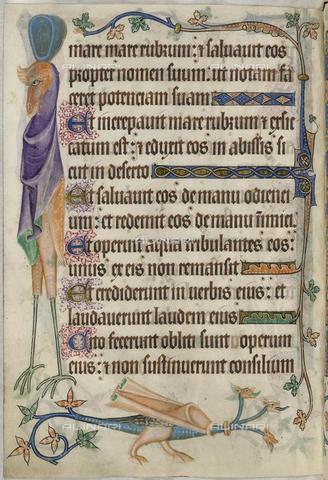 mare mare rubrum: ⁊ saluauit eos
propter nomen suum: ut notam fa
ceret potenciam suam
Et increpauit mare rubrum ⁊ exsic
catum est: ⁊ eduxit eos in abissis si
cut in deserto
Et saluauit eos de manu odienci
um: et redemit eos de manu inimici
Et operuit aqua tribulantes eos:
unus ex eis non remansit
Et crediderunt in uerbis eius: et
laudauerunt laudem eius
Cito fecerunt obliti sunt operum
eius: ⁊ non sustinuerunt consilium
ALINARI
ALINARI